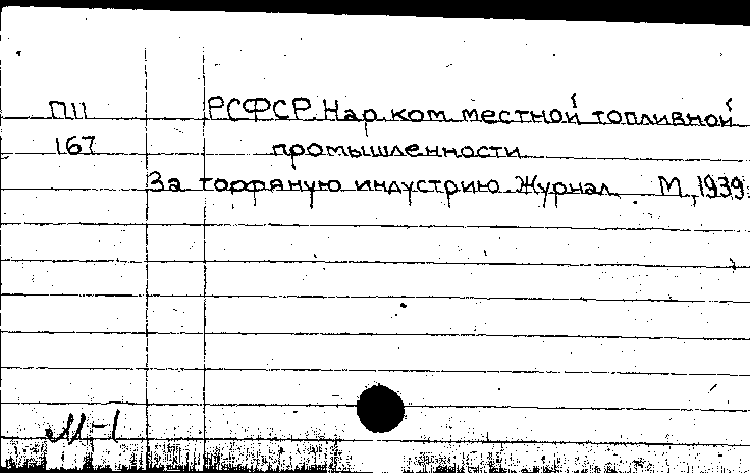 П11 РСФСР. Нар. ком. местной топливной
167 промышленности
За торфяную индустрию. Журнал. М., 1939.
М-Т